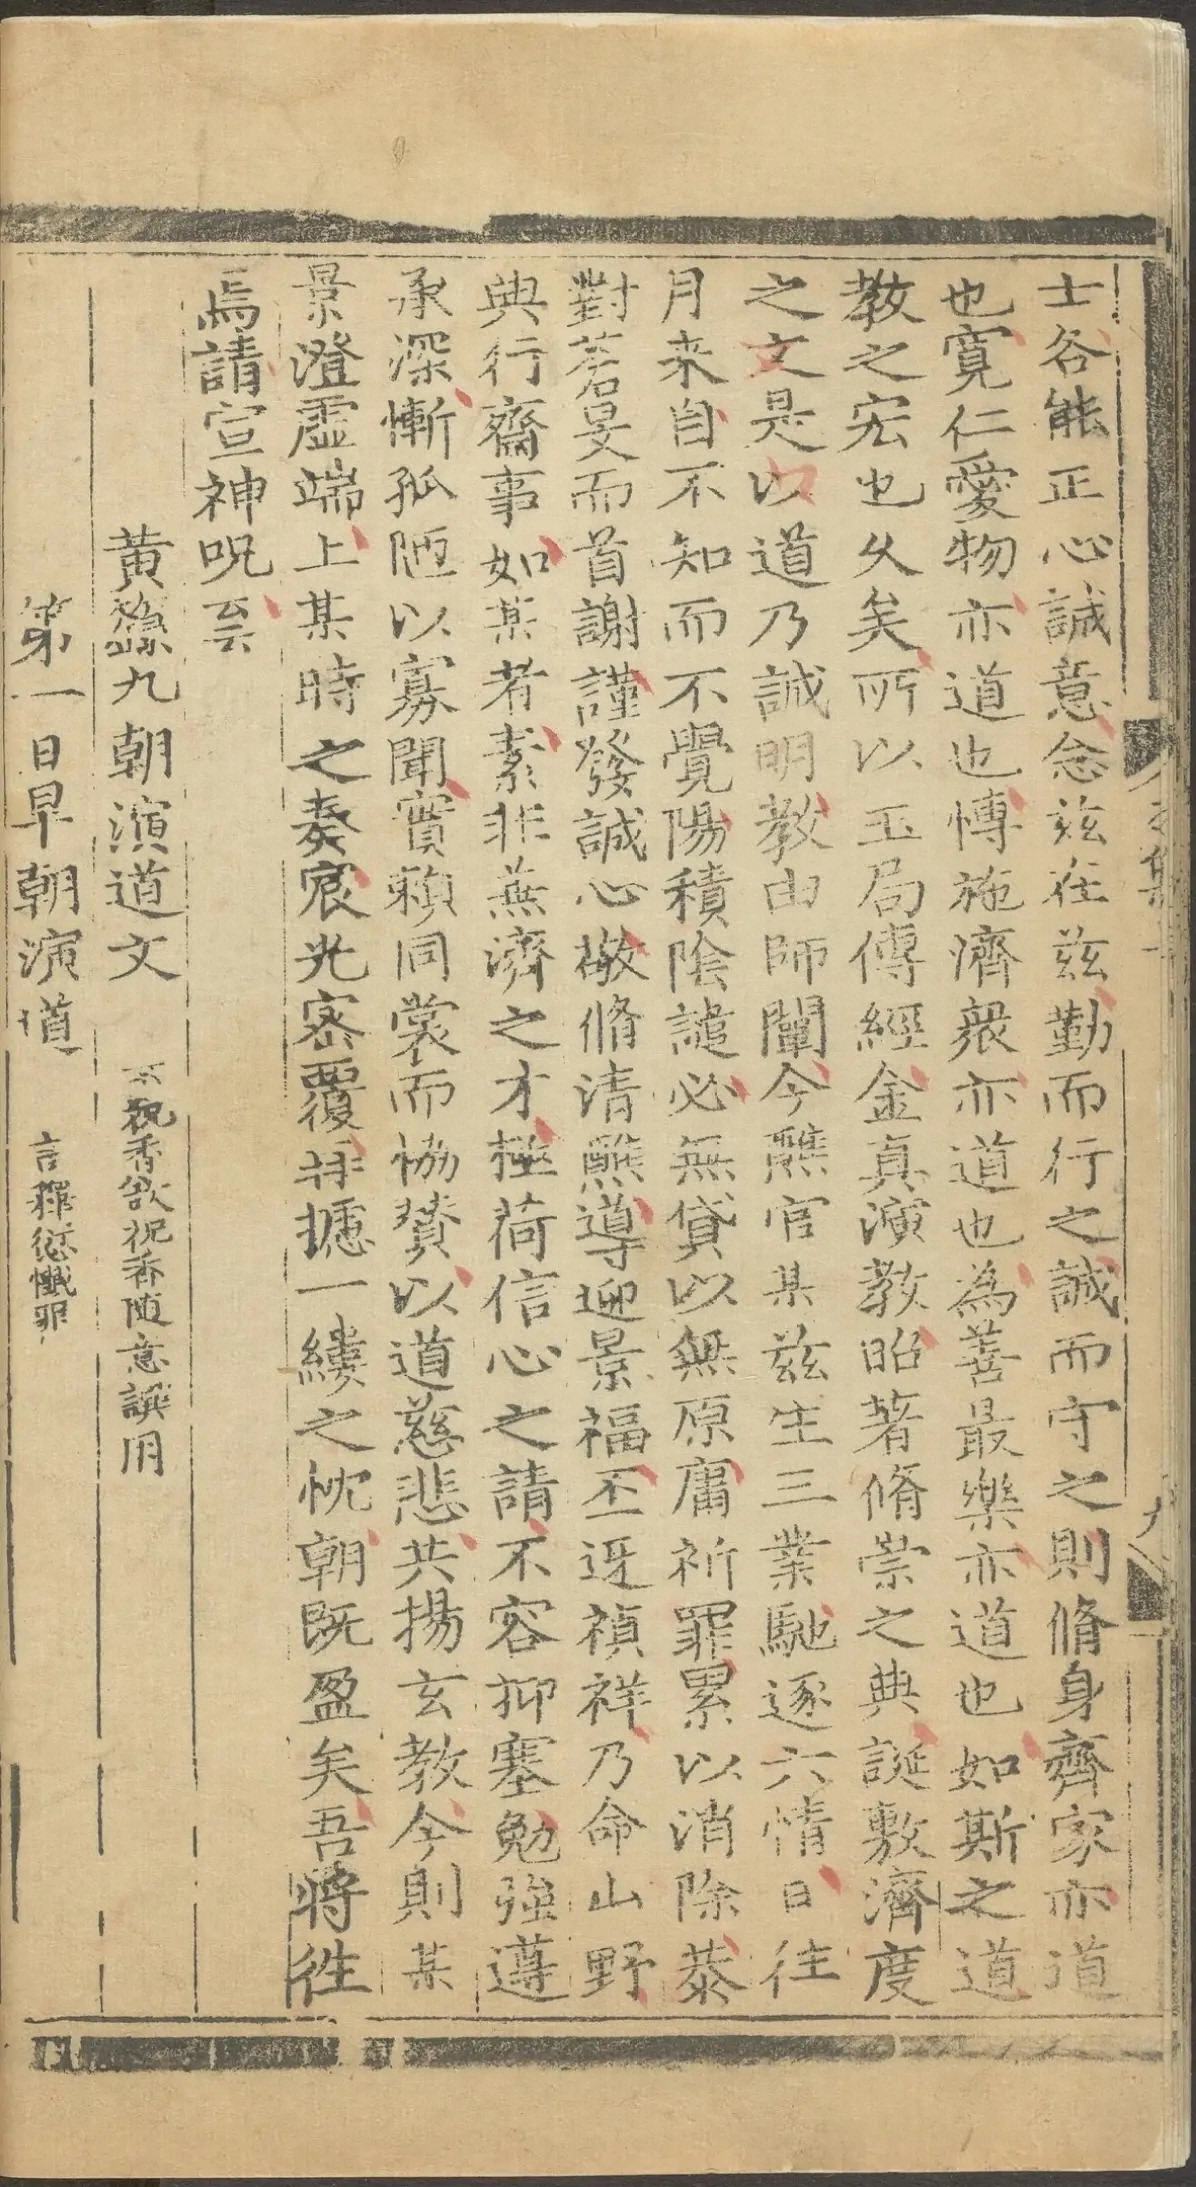 士各能正心誠意念兹在兹勤而行之誠而守之則脩身齊家亦道
也寛仁愛物亦道也博施濟衆亦道也為善最樂亦道也如斯之道
教之宏也久矣所以玉局傳經金真演教昭著脩崇之典誕敷濟度
之文是以道乃誠明教由師闡今醮官某兹生三業馳逐六情日往
月来自不知而不覺陽積陰譴必無貸以無原庸祈罪累以消除恭
對蒼旻而首謝謹發誠心敬脩清醮導迎景福丕迓禎祥乃命山野
與行齋事如某者素非兼濟之才極荷信心之請不容抑塞勉強遵
承深慚孤陋以寡聞實賴同裳而恊賛以道慈悲共揚玄教今則某
景澄虚端上某時之奏宸光密覆拜攄一縷之忱朝既盈矣吾將徃
焉請宣神呪云云
黃籙九朝演道文 不祝香欲祝香随意譔用
第一日早朝演道 言釋愆懺罪